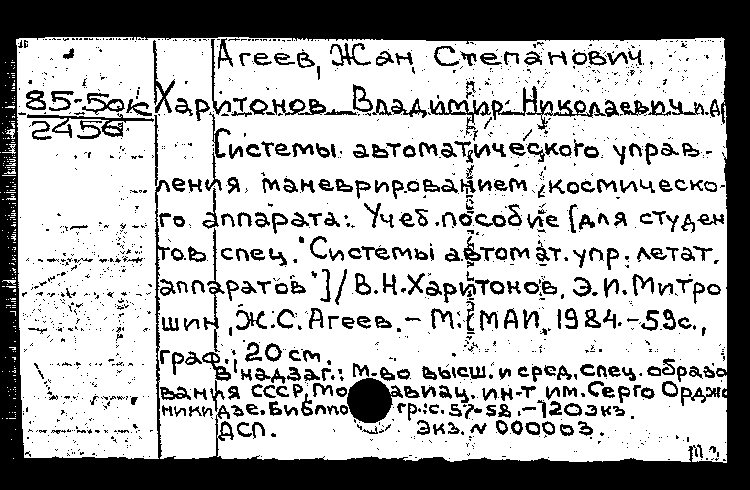 Агеев, Жан Степанович.
85-50к Харитонов Владимир Николаевич и др
2456
Системы автоматического управ-
ления маневрированием космическо-
го аппарата: Учеб. пособие [для студен
тов спец. "Системы автомат. упр. летат.
аппаратов"] / В.Н.Харитонов, Э.И.Митро
шин, Ж.С.Агеев. - М.: МАИ, 1984. - 59с.,
граф.; 20 cm.
В надзаг.: М-во высш. и сред. спец. образо
вания СССР, Мо авиац. ин-т им. Серго Орджо
никидзе. Библио гр.: с. 57-58. - 120 экз.
ДСП. Экз. N 000003.